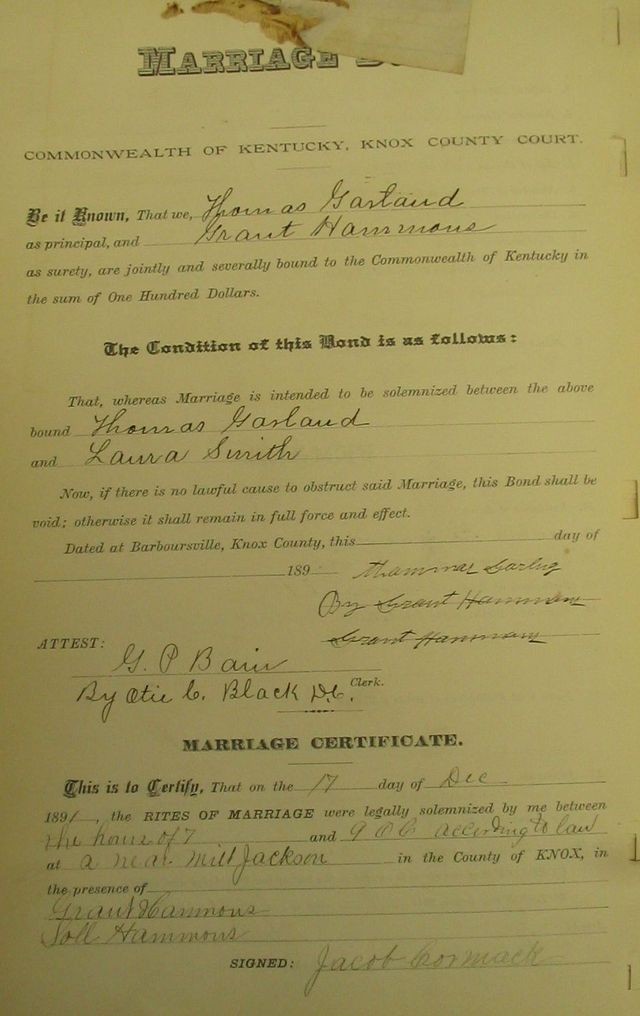 MARRIAGE
COMMONWEALTH OF KENTUCKY, KNOX COUNTY COURT.
Be it Known, That we, Thomas Garland
as principal, and Grant Hammons
as surety, are jointly and severally bound to the Commonwealth of Kentucky in
the sum of One Hundred Dollars.
The Condition of this Bond is as follows:
That, whereas Marriage is intended to be solemnized between the above
bound Thomas Garland
and Laura Smith
Now, if there is no lawful cause to obstruct said Marriage, this Bond shall be
void; otherwise it shall remain in full force and effect.
Dated at Barboursville, Knox County, this day of
189
By Grant Hammons
Grant Hammons
ATTEST:
G. P Bain
By Otie C. Black D.C. Clerk.
MARRIAGE CERTIFICATE.
This is to Certify, That on the 17 day of Dec
1891, the RITES OF MARRIAGE were legally solemnized by me between
the hours of 7 and 9 O C according to law
at a near Mill Jackson in the County of KNOX, in
the presence of
Grant Hammons
Hammons
SIGNED: Jacob Cormack